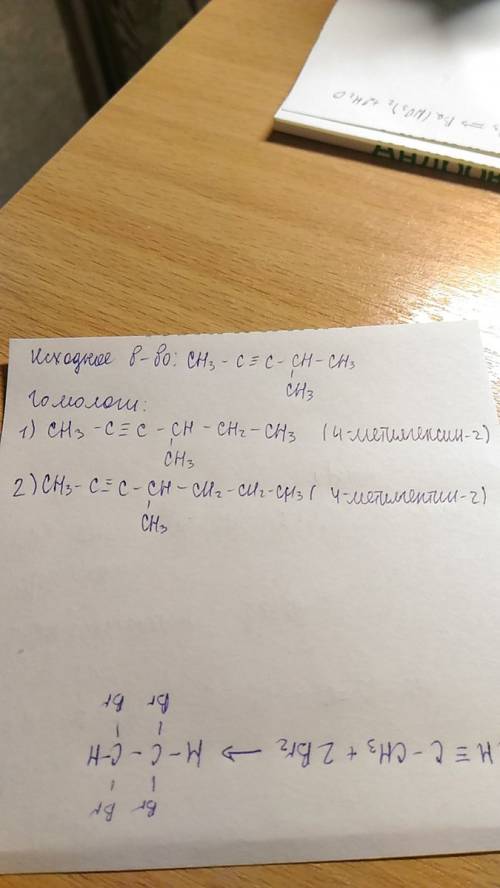 Исходное в-во: CH₃ - C ≡ C - CH - CH₃
CH₃
Гомологи:
1) CH₃ - C ≡ C - CH - CH₂ - CH₃ (4-метилгексин-2)
CH₃
2) CH₃ - C ≡ C - CH - CH₂ - CH₂ - CH₃ (4-метилгептин-2)
CH₃
H ≡ C - CH₃ + 2Br₂ → H - C - C - H
Br Br
Br Br